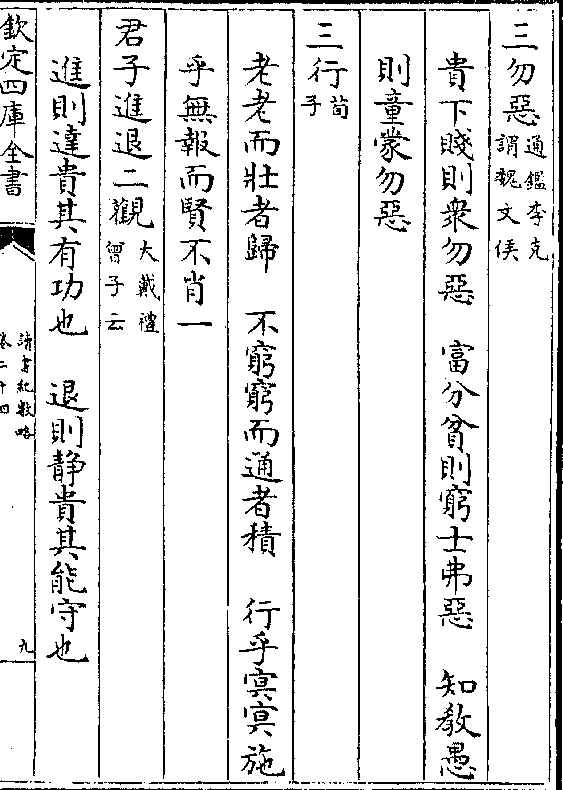 三勿惡通鑑李克謂魏文侯
貴下賤則衆勿惡　富分貧則窮士弗惡　知教愚
則童蒙勿惡
三行荀子
老老而壯者歸　不窮窮而通者積　行乎㝠㝠施
乎無報而賢不肖一
君子進退二觀大戴禮曾子云
進則達貴其有功也　退則静貴其能守也
欽定四庫全書
讀書紀數略
卷二十四
九